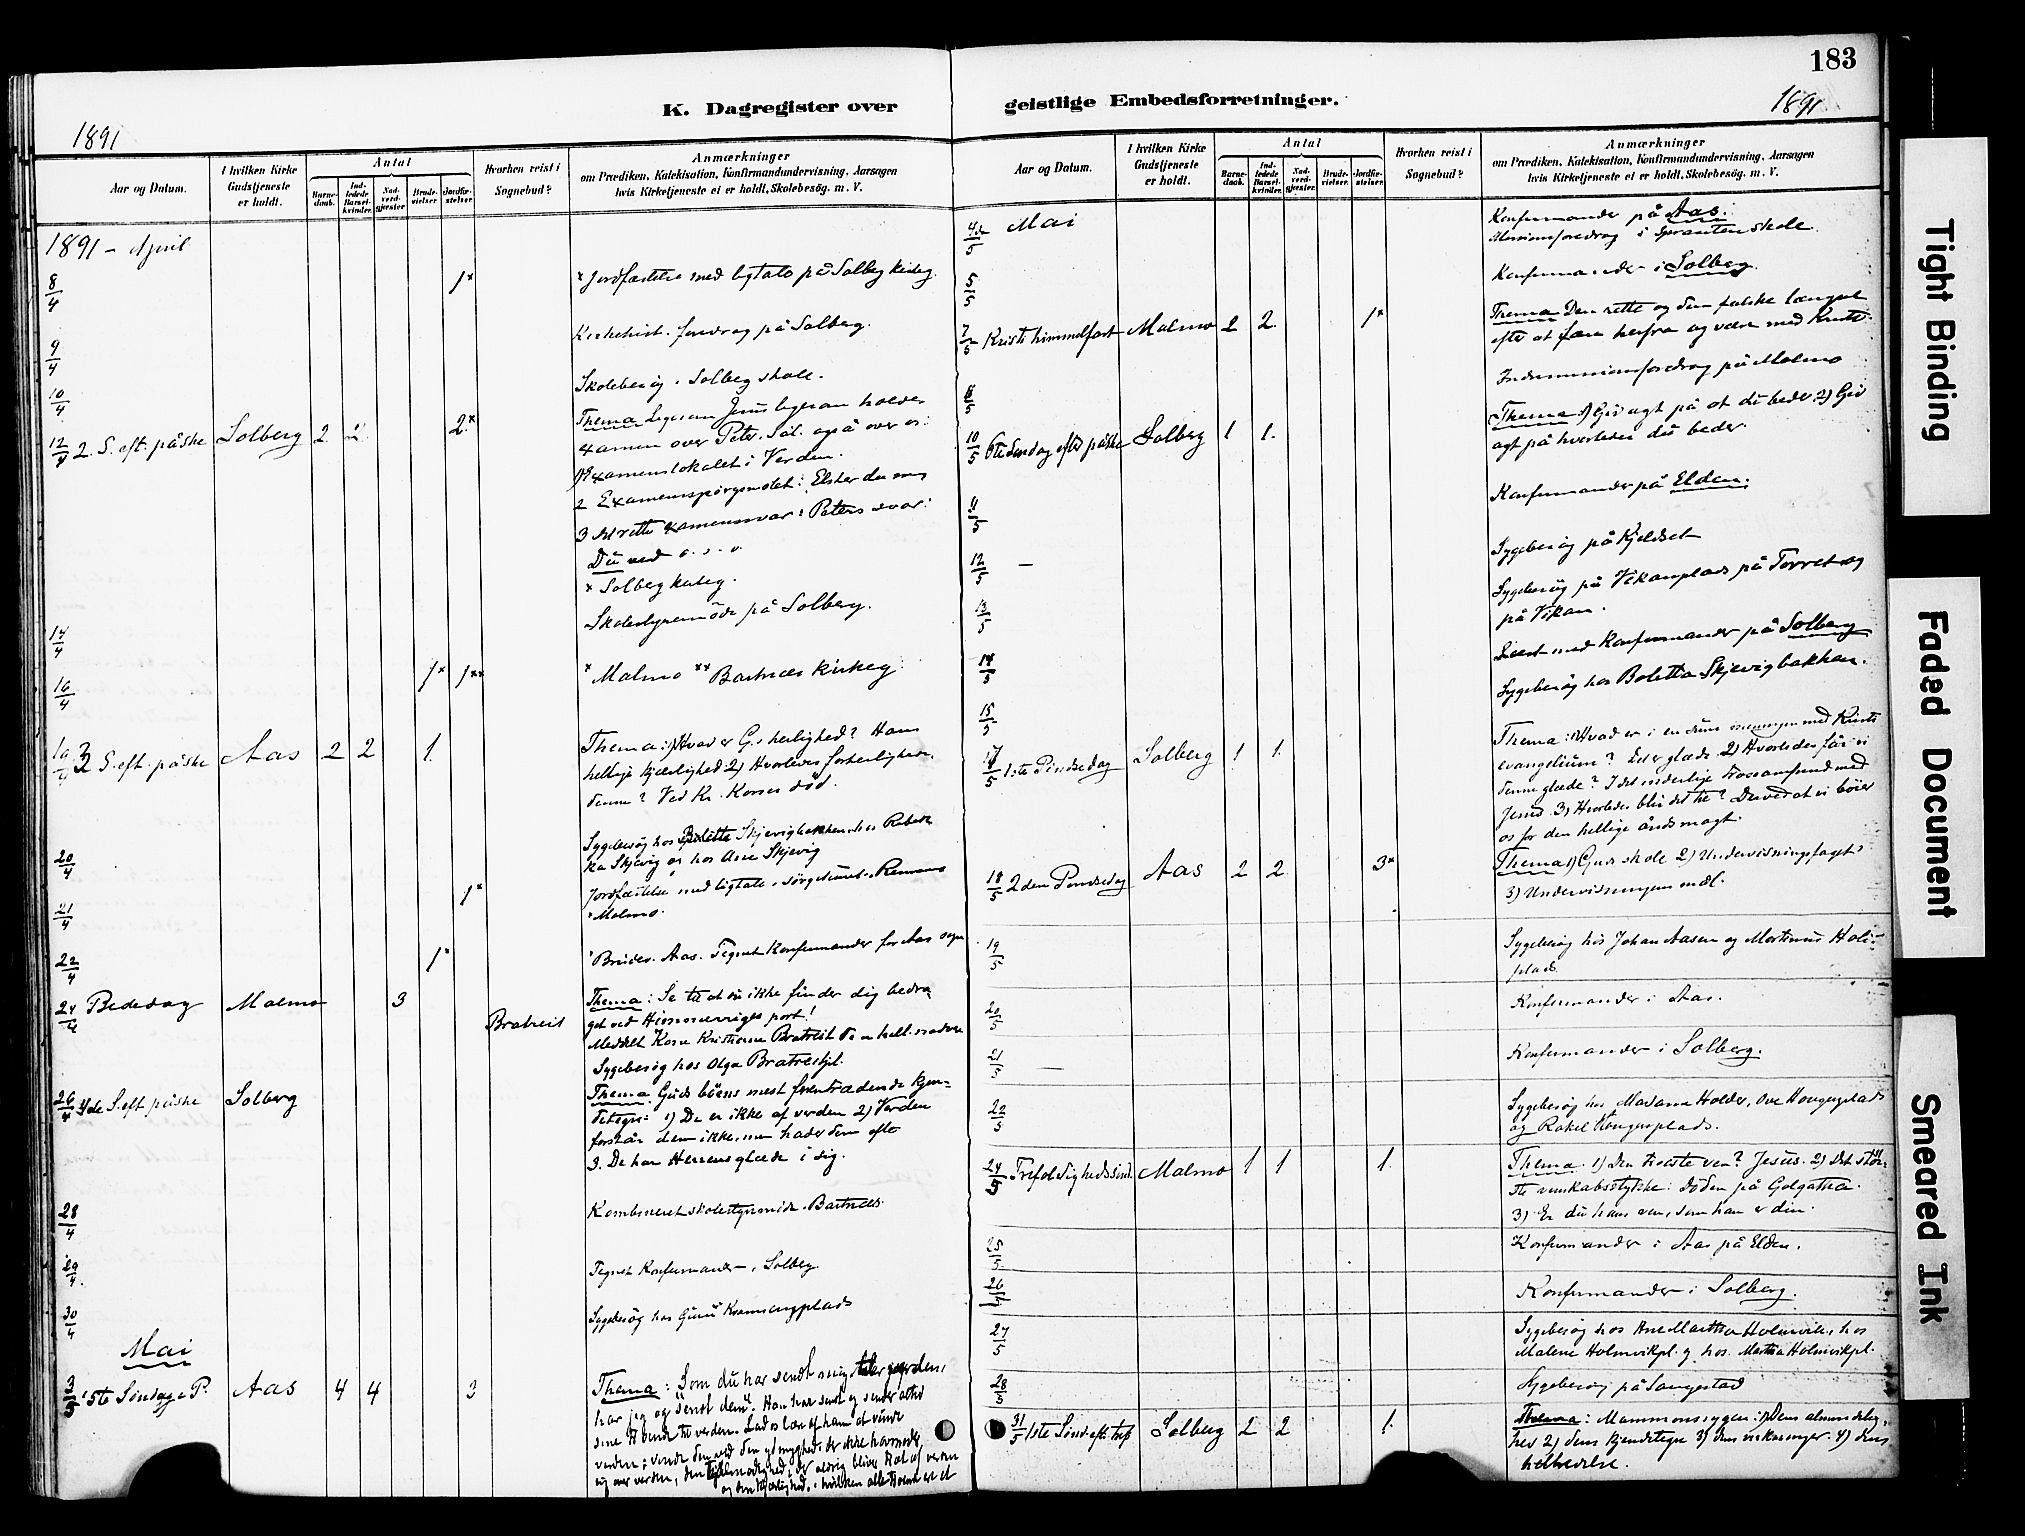 183
K. Dagregister over geistlige Embedsforretninger.
1891
1891
Aar og Datum.
I hvilken Kirke Gudstjeneste er holdt.
Antal
Barnedaab.
Indledede Barselkvinder.
Nadverdgjester.
Brudevielser.
Jordfæstelser.
Hvorhen reist i Sognebud?
Anmærkninger
om Prædiken, Katekisation, Konfirmandundervisning, Aarsagen
hvis Kirketjeneste ei er holdt, Skolebesøg. m. V.
1891 - April
8/4 1x x Jordfæstelse med ligtale på Solberg kirkeg.
9/4 Kirkehist. foredrag på Solberg.
10/4 Skolebesøg i Solberg skole.
12/4 2. S. eft. påske Solberg 2 2 2x Thema Ligesom Jesus ligesom holder
examen over Peter. Sål. også over os:
1) Examenslokalet: Verden.
2 Examensspörgsmålet: Elsker du mig
3 det rette examenssvar: Peters svar:
Du ved o. s. v.
x Solberg kirkeg.
14/4 Skolestyremöde på Solberg.
16/4 1x 1xx x Malmo xx Bartnæs kirkeg.
19/4 3 S. eft. påske Aas 2 2 1. Thema: 1) Hvad er G.s herlighed? Hans
hellige kjærlighed 2) Hvorledes forherliges
denne? Ved Kr. Korses död.
20/4 Sygebesøg hos Boletta Skjevigbakken, hos Rebek-
ka Skjevig og hos Ane Skjevig
21/4 1x Jordfæstelse med ligtale i sørgehuset. Remmen
x Malmo.
22/4 1x x Brudev. Aas. Tegnet konfirmander for Aas sogn
24/4 Bededag Malmo 3 Thema: Se til at du ikke finder dig bedra-
get ved Himmerriges port!
Bratreit Meddelt Kone Kristianne Bratreit d. n. hell. nadvere
Sygebesøg hos Olga Bratreitpl.
26/4 4de S. eft. påske Solberg Thema. Guds börns mest fremtrædende kjen-
detegn: 1) De er ikke af verden 2) Verden
forstår dem ikke, men hader dem ofte
3. De har Herrens glæde i sig.
28/4 Kombineret skolestyremöde. Bartnæs
29/4. Tegnet Konfirmander i Solberg.
30/4 Sygebesøg hos Guru Kvamsengplads
Mai
3/5 5te Söndag e P. Aas 4 4 3 Thema: Som du har sendt mig til verden,
har jeg og sendt dem. Han har sendt og sender altid
sine til verden. Lad os lære af ham at vinde
verden; vinde den ved den ydmyghed, der ikke hovmoder
sig over verden, den tålmodighed, der aldrig bliver træt af verden
og den kjærlighed, i hvilken alle
Aar og Datum.
I hvilken Kirke Gudstjeneste er holdt.
Antal
Barnedaab.
Indledede Barselkvinder.
Nadverdgjester.
Brudevielser.
Jordfæstelser.
Hvorhen reist i Sognebud?
Anmærkninger
om Prædiken, Katekisation, Konfirmandundervisning, Aarsagen
hvis Kirketjeneste ei er holdt, Skolebesøg. m. V.
4de/5 Mai Konfirmander på Aas.
Missionsforedrag i skole.
5/5 Konfirmander i Solberg.
7/5 Kristi himmelfart Malmo 2 2. 1x Thema Den rette og den falske længsel
efter at fare herfra og være med Kristo.
8/5 Indremissionsforedrag på Malmo
10/5 6te Söndag efter påske Solberg 1 1. Thema: 1) Giv agt på at du beder 2) Giv
agt på hvorledes du beder.
11/5 Konfirmander på Elden.
12/5 — Sygebesøg på Kjeldset
13/5 Sygebesøg på Vikanplads på Torret og
på Vikan.
14/5 Læst med Konfirmander på Solberg
15/5 Sygebesøg hos Boletta Skjevigbakken.
17/5 1ste Pindsedag Solberg 1 1. Thema: 1) Hvad er i en sum meningen med Kristi
evangelium? Det er glæde 2) Hvorledes får vi
denne glæde? I det inderlige trossamfund med
Jesus. 3) Hvorledes blir det til? Derved at vi böier
os for den hellige ånds magt.
18/5 2den Pindsedag Aas 2 2 3x Thema 1) Guds skole 2) Undervisningsfaget
3) Undervisningens mål.
19/5 Sygebesøg hos Johan Aasen og Martinus Holi-
plads.
20/5 Konfirmander i Aas.
21/5 — Konfirmander i Solberg.
22/5 Sygebesøg hos Madame Holder, Ove Haugenplads
og Rakel Haugenplads.
24/5 Trefoldighedssönd. Malmo 1 1 1. Thema. 1) Den troeste ven? Jesus. 2) Det stör-
ste venskabsstykke: döden på Golgatha.
3) Er du hans ven, som han er din.
25/5 Konfirmander i Aas på Elden.
26/5 Konfirmander i Solberg.
27/5 Sygebesøg hos Ane Martha Holmvik, hos
Malene Holmvikpl. og hos Martha Holmvikpl.
28/5 Sygebesøg på Sangestad
31/5 1ste Sönd. eft. tref Solberg 2 2 1. Thema: Mammonssygen: 1) Dens almindelig-
hed 2) dens kjendetegn 3) dens virkninger. 4) dens
helbredelse.
Tight Binding
Faded Document
Smeared Ink